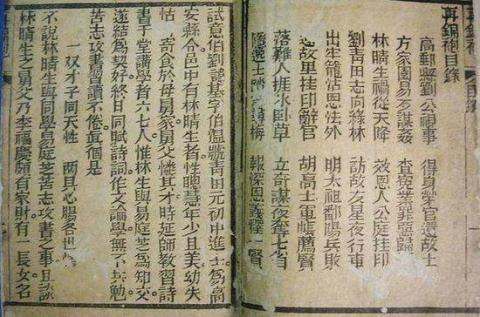 再錦袍目錄
高郵縣劉公視事 得身榮官還故土
方家園易歹謀姦 查寃業罪惡歸
林晴生禍從天降 效恩人公庭挂印
劉青田志向綠林 訪故友星夜行車
出牢籠怙恩性外 明太祖鄱陽兵敗
返故里挂印辭官 胡高士軍帳薦賢
落難人捱水臥草 立奇謀夜奪七省
隱逸士 報深恩義 一賢
試意安縣伯劉諱基字伯溫號青田元初中進士爲高
安縣令邑中有林晴生者性聰慧年少且美幼失
怙 寄食於母舅家舅父憐其才時延師教習詩
書于堂講學者六七人惟林生與易庭芝爲知交
遂結爲契好終日同賦詩詞作文論學無不共勉
苦志攻書習讀不倦真個是
一双才子同天性 兩具心腸各世
不說林晴生與同學易庭芝苦志攻書之事且談
林晴生之舅父乃李福慶頗有家財有一長女名